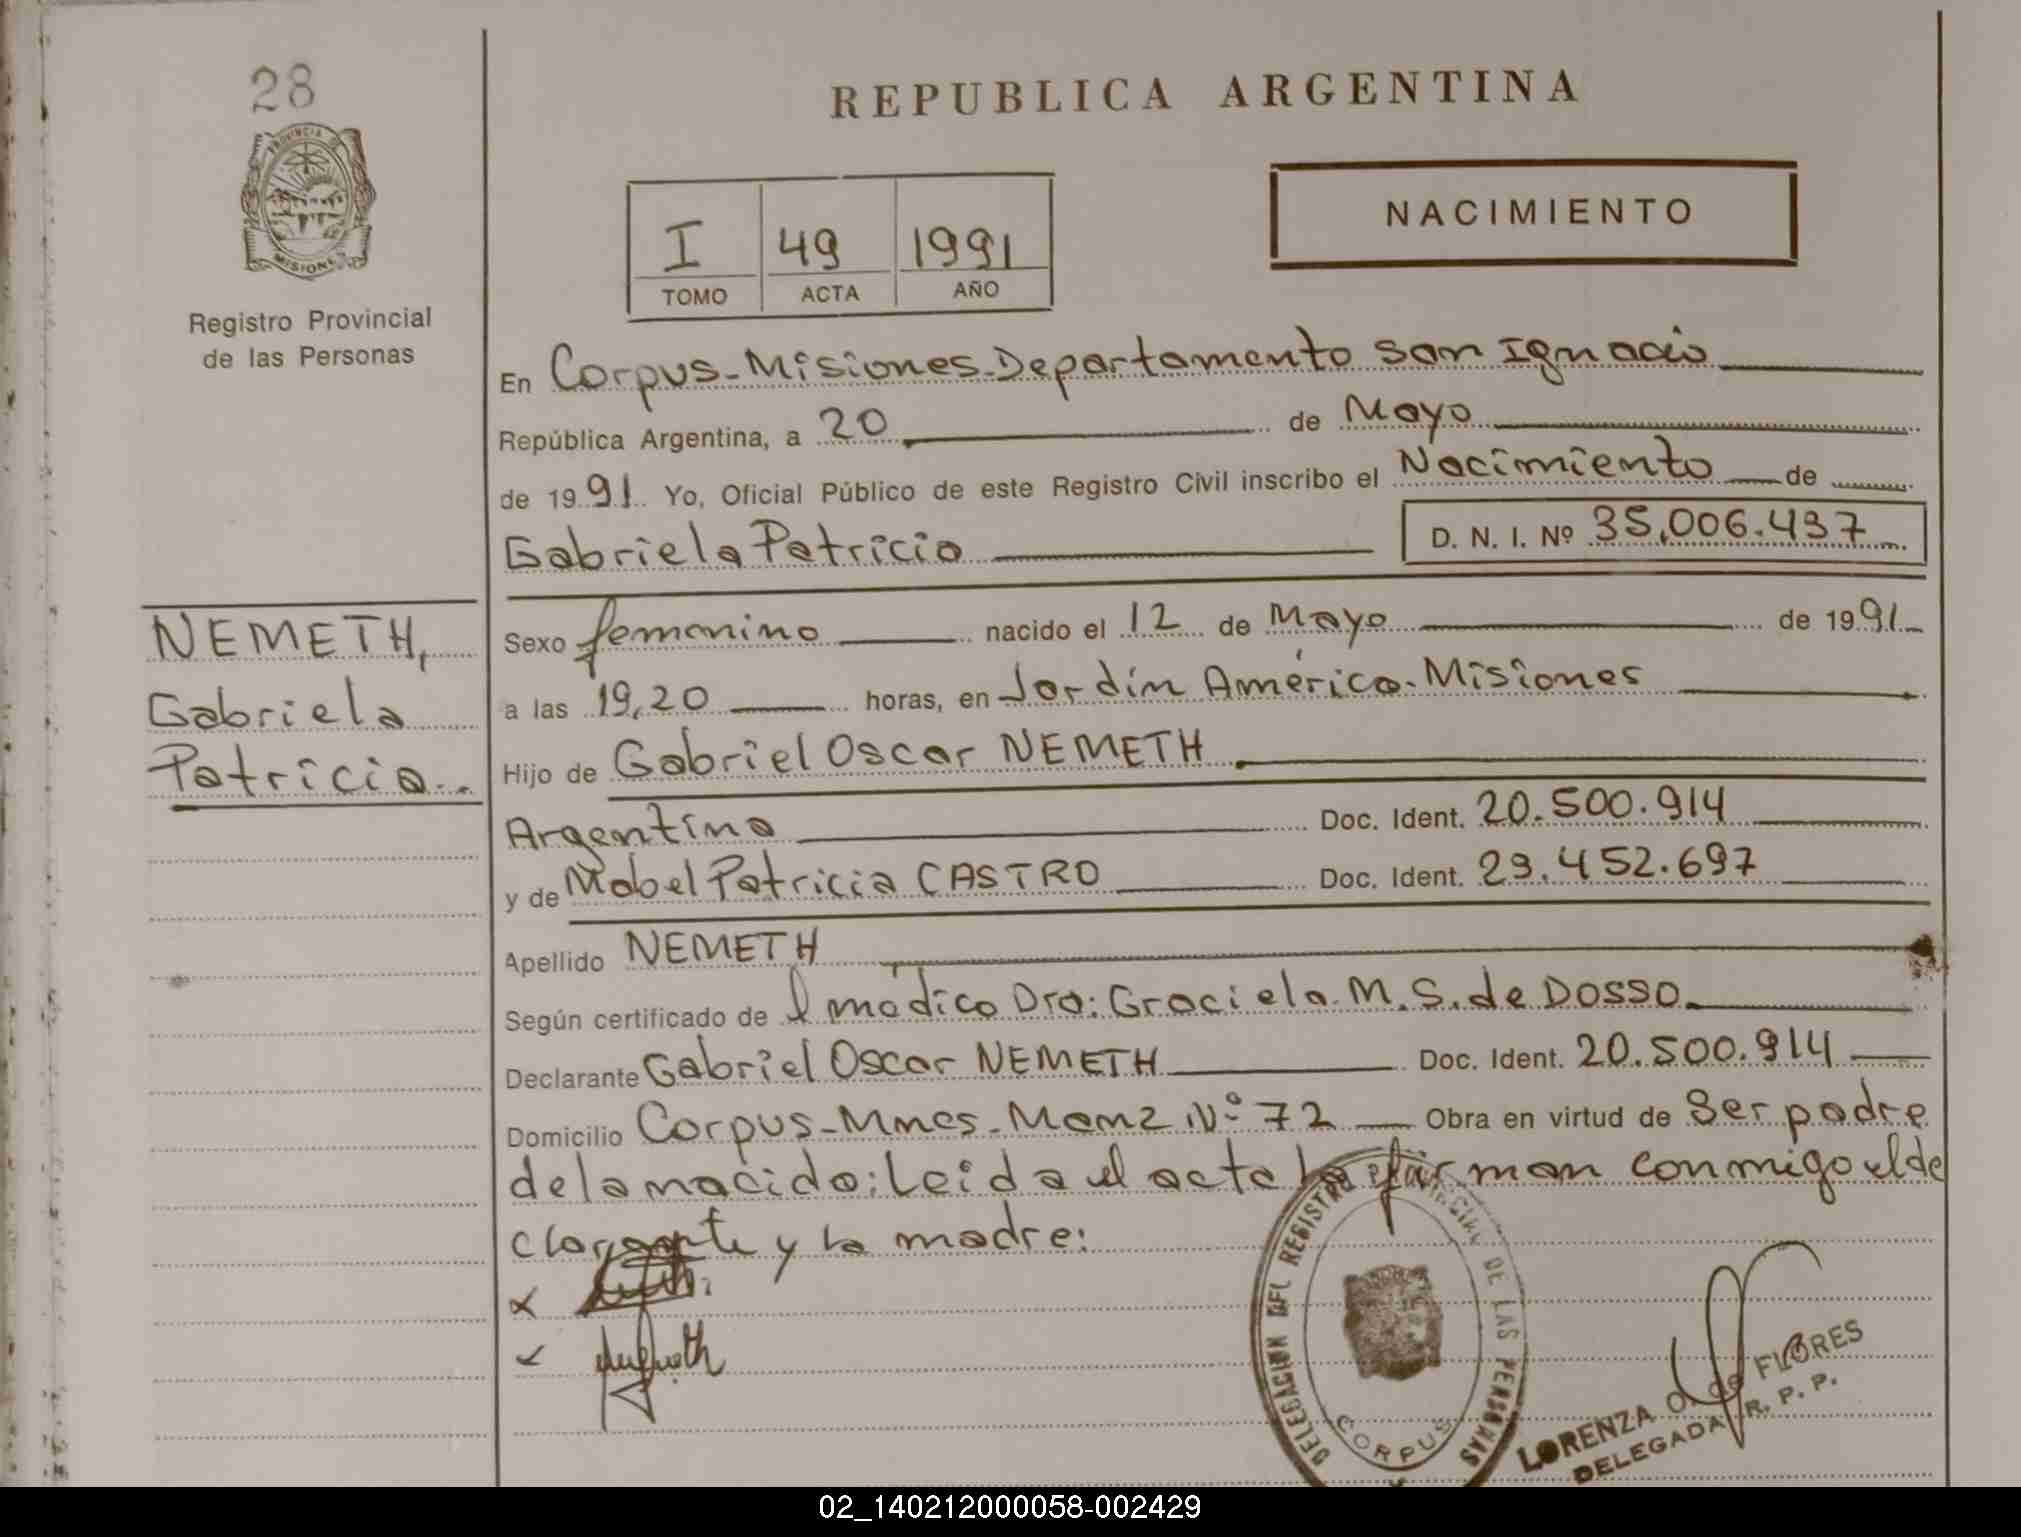 28
PROVINCIA DE
MISIONES
Registro Provincial
de las Personas
REPUBLICA ARGENTINA
I 49 1991
TOMO ACTA AÑO
NACIMIENTO
En Corpus-Misiones-Departamento San Ignacio
República Argentina, a 20 de Mayo
de 1991. Yo, Oficial Público de este Registro Civil inscribo el Nacimiento de
Gabriela Patricia D. N. I. Nº 35,006.437
NEMETH,
Gabriela
Patricia..
Sexo femenino nacido el 12 de Mayo de 1991
a las 19,20 horas, en Jardín América-Misiones
Hijo de Gabriel Oscar NEMETH
Argentino Doc. Ident. 20.500.914
y de Mabel Patricia CASTRO Doc. Ident. 29.452.697
Apellido NEMETH
Según certificado de l médico Dra: Graciela M. S. de DOSSO
Declarante Gabriel Oscar NEMETH Doc. Ident. 20.500.914
Domicilio Corpus-Mnes-Manz Nº 72 Obra en virtud de Ser padre
de la nacida; Leida el acta la firman conmigo el de
clarante y la madre:
DELEGACION DEL REGISTRO PROVINCIAL DE LAS PERSONAS
CORPUS
LORENZA O. de FLORES
DELEGADA R. P. P.
02_140212000058-002429